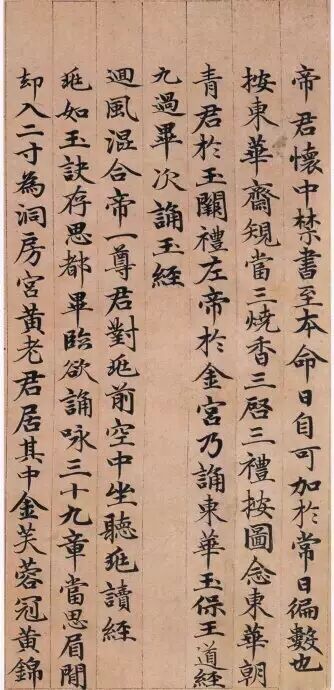 帝君懷中禁書至本命日自可加於常日徧數也
按東華齋規當三燒香三啓三禮按圖念東華朝
青君於玉闕禮左帝於金宮乃誦東華玉保王道經
九過畢次誦玉經
迴風混合帝一尊君對兆前空中坐聽兆讀經
兆如玉訣存思都畢臨欲誦詠三十九章當思眉間
却入二寸為洞房宮黃老君居其中金芙蓉冠黃錦